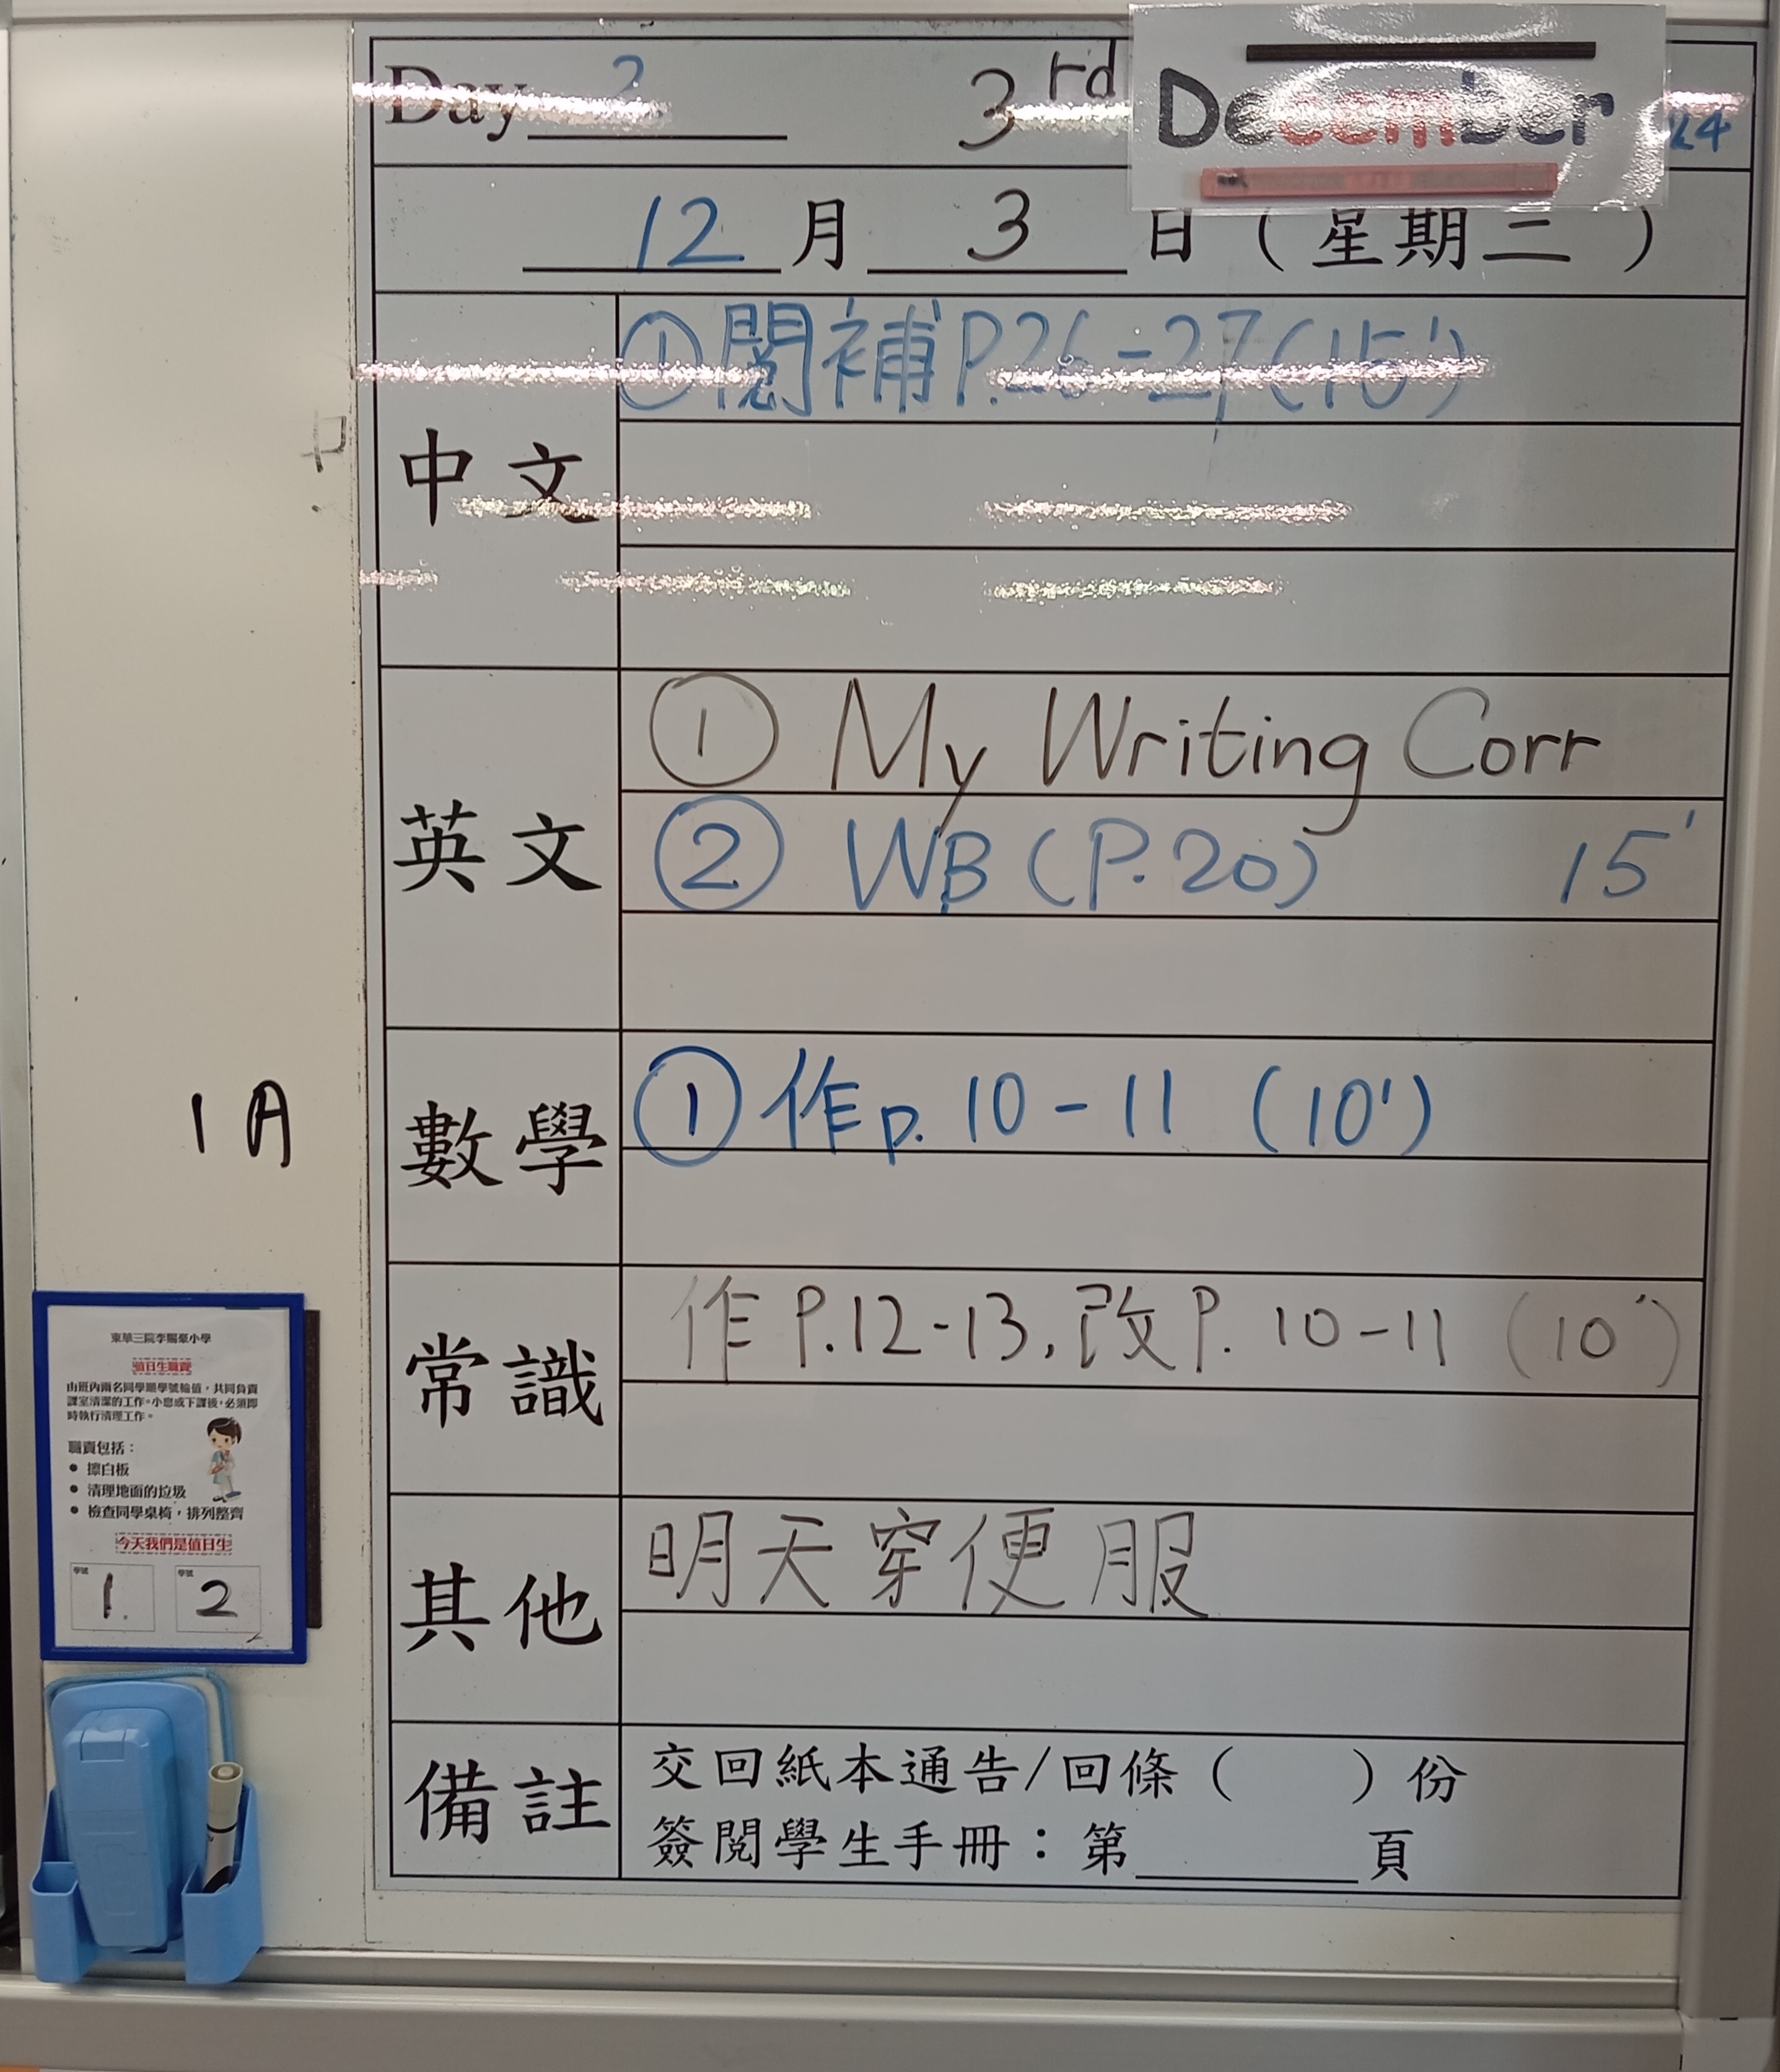 Day 3rd December 24
12 月 3 日 ( 星期二 )
中文
① 閱補 P.26-27 (15')
英文
① My Writing Corr
② WB (P.20) 15'
數學
① 作 p. 10-11 (10')
常識
作 P.12-13, 改 P. 10-11 (10')
其他
明天穿便服
備註
交回紙本通告/回條 ( ) 份
簽閱學生手冊：第 頁
1A
東華三院李賜豪小學
值日生職責
由班內兩名同學順學號輪值，共同負責
課室清潔的工作。小息或下課後，必須即
時執行清理工作。
職責包括：
● 擦白板
● 清理地面的垃圾
● 檢查同學桌椅，排列整齊
今天我們是值日生
學號 1. 學號 2